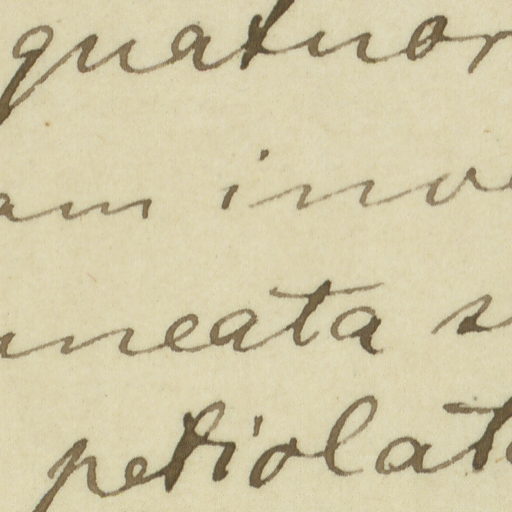 quatuor
am inv
uneata s
petiolat